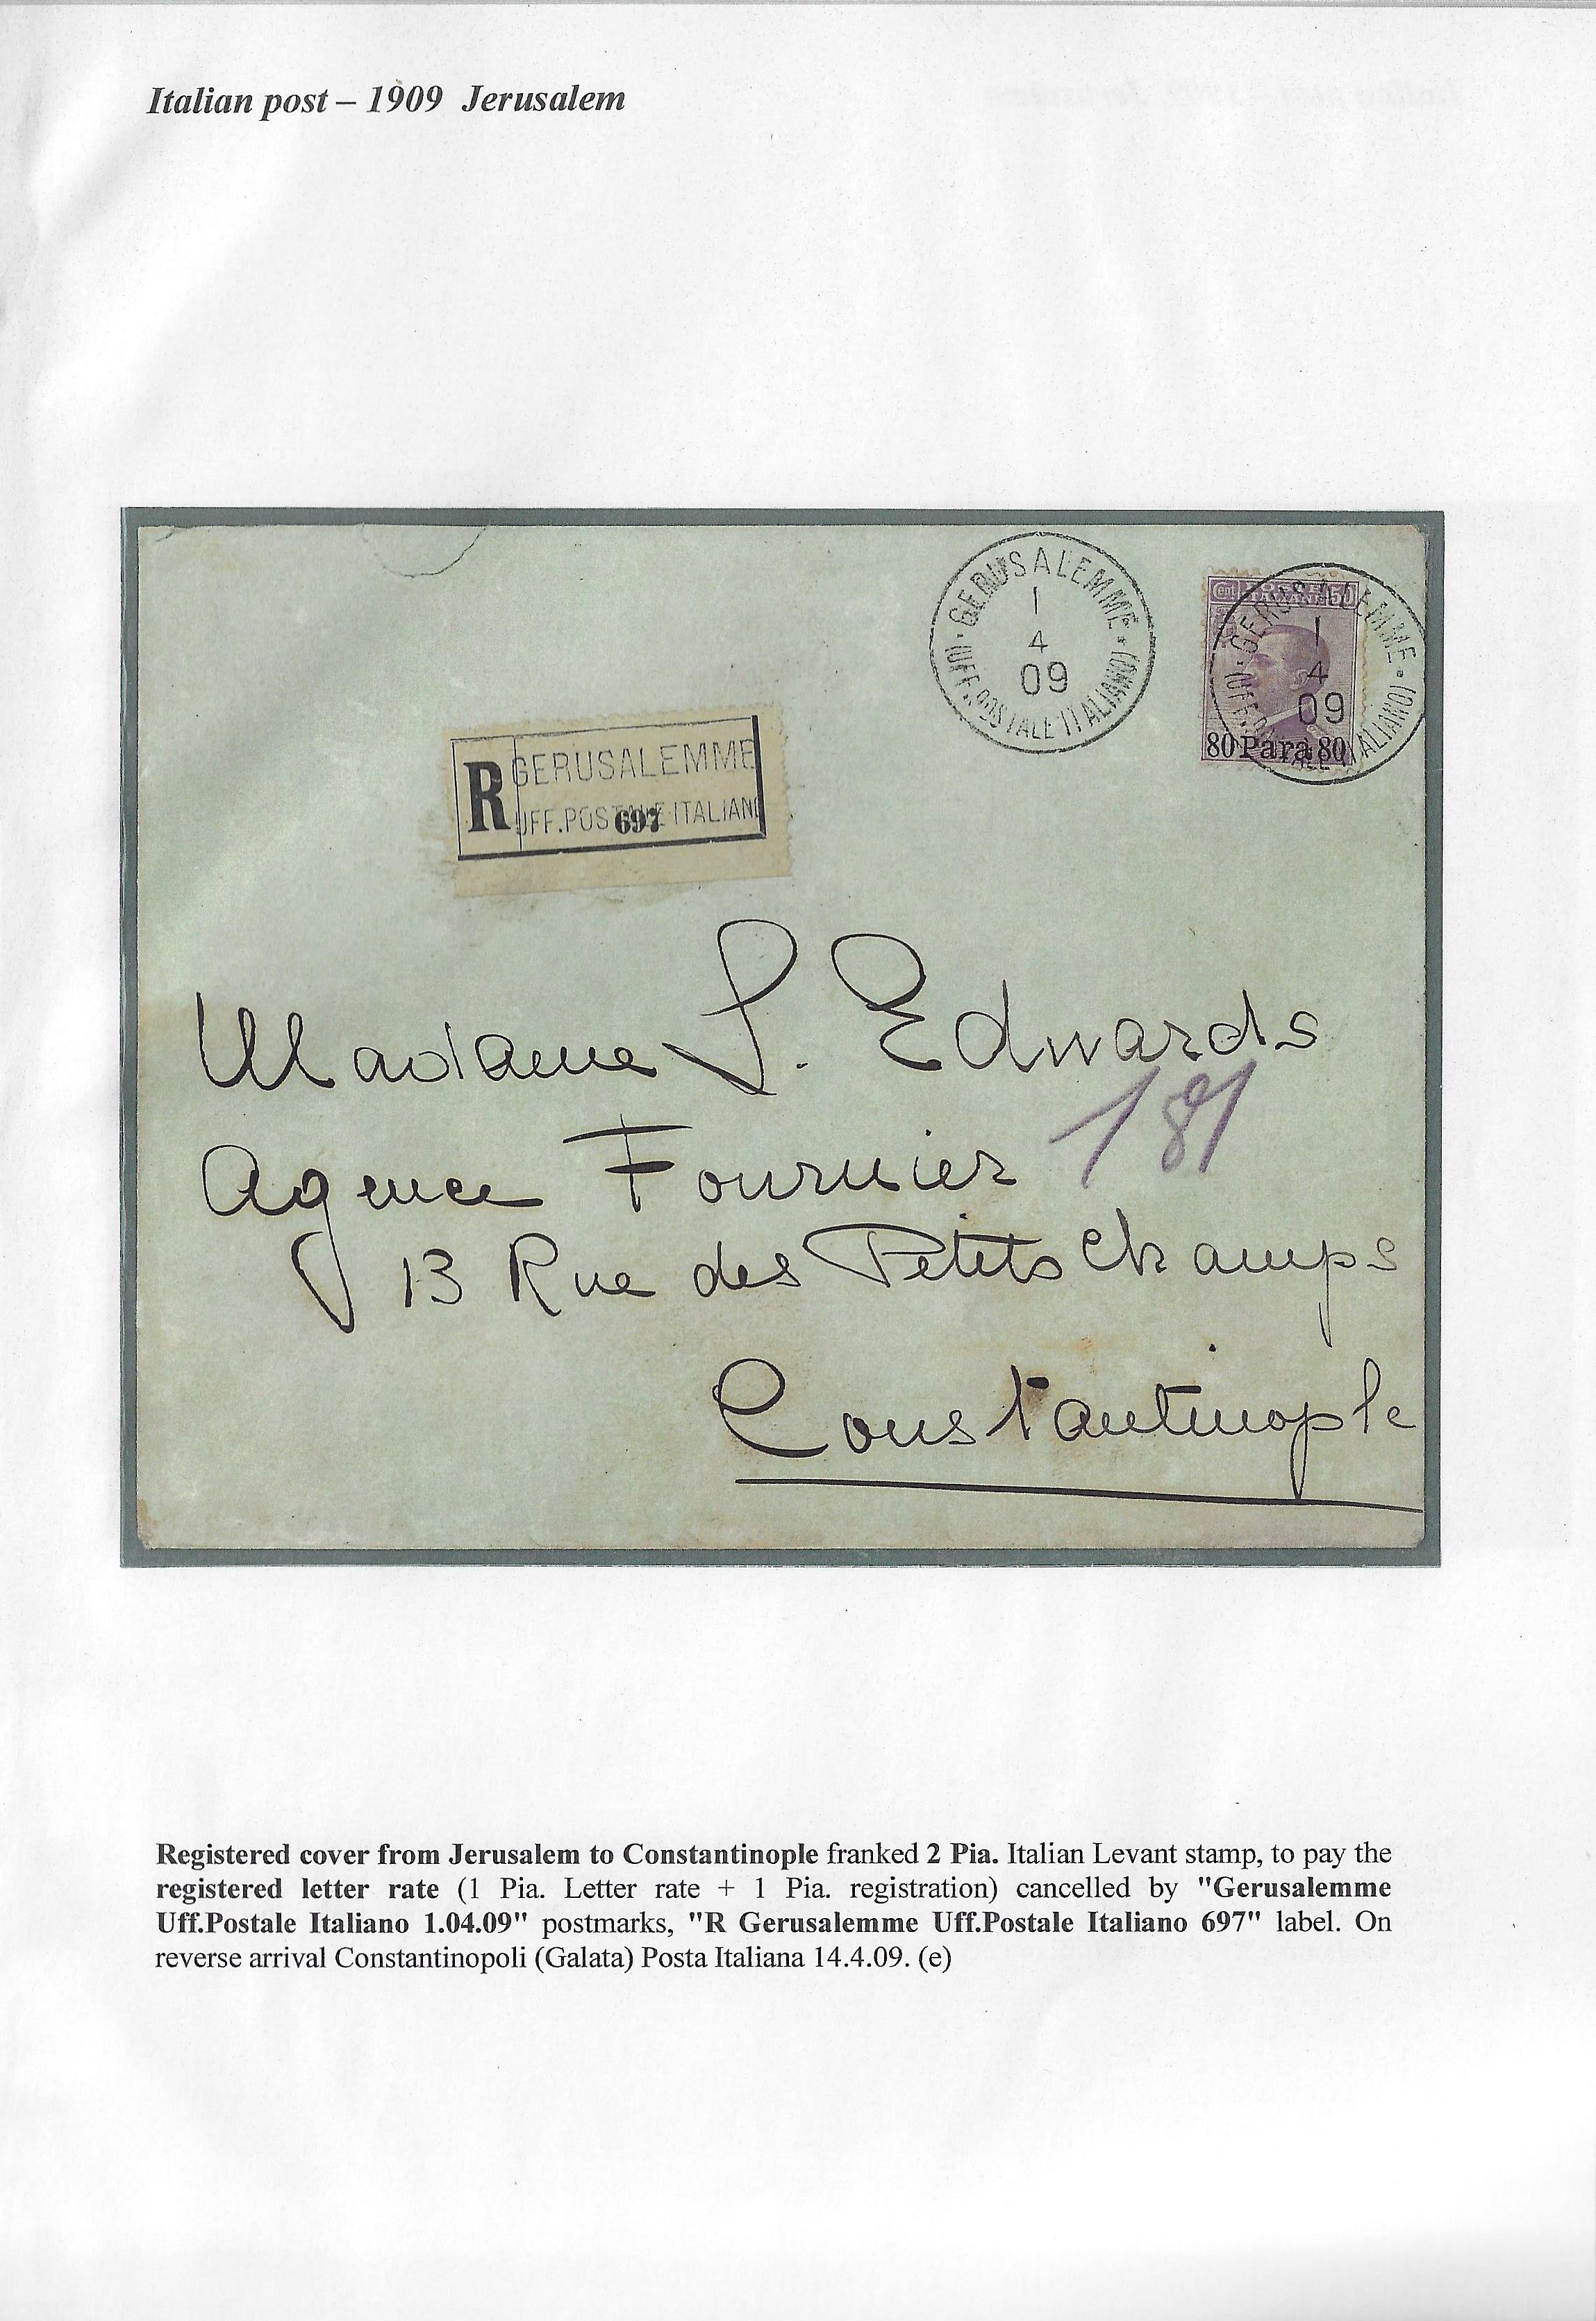 Italian post – 1909 Jerusalem
GERUSALEMME
1
4
09
(UFF. POSTALE ITALIANO)
Cent 50
GERUSALEMME
1
4
09
(UFF. POSTALE ITALIANO)
80 Parà 80
R GERUSALEMME
UFF. POSTALE ITALIANO
697
Madame S. Edwards
181
Agence Fournier
13 Rue des Petits Champs
Constantinople
Registered cover from Jerusalem to Constantinople franked 2 Pia. Italian Levant stamp, to pay the
registered letter rate (1 Pia. Letter rate + 1 Pia. registration) cancelled by "Gerusalemme
Uff.Postale Italiano 1.04.09" postmarks, "R Gerusalemme Uff.Postale Italiano 697" label. On
reverse arrival Constantinopoli (Galata) Posta Italiana 14.4.09. (e)